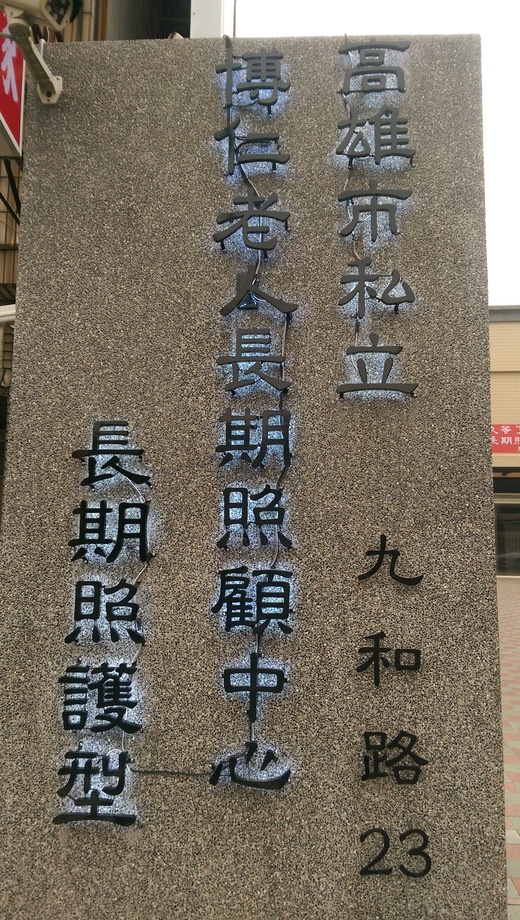 高雄市私立
九和路23
博仁老人長期照顧中心
長期照護型